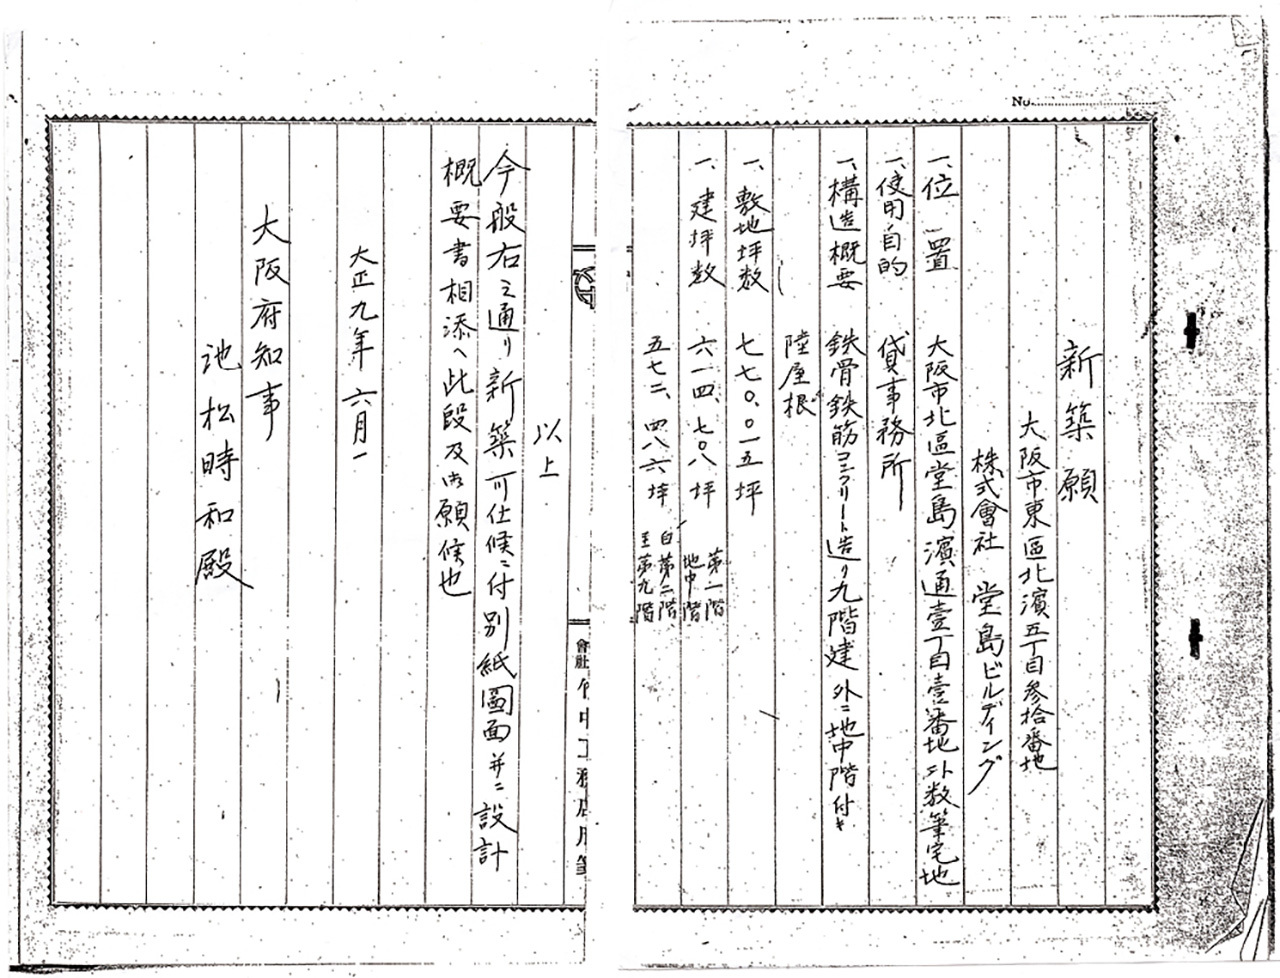 No.
新築願
大阪市東區北濱五丁目參拾番地
株式會社 堂島ビルディング
一、位置 大阪市北區堂島濱通壹丁目壹番地外数筆宅地
一、使用目的 貸事務所
一、構造概要 鉄骨鉄筋コンクリート造リ九階建 外ニ地中階付キ
陸屋根
一、敷地坪数 七七〇、〇一五坪
一、建坪数 六一四、七〇八坪 第一階 地中階
五七二、四八六坪 自第二階 至第九階
以上
今般右之通リ新築可仕候ニ付別紙圖面並ニ設計
概要書相添ヘ此段及御願候也
大正九年六月
大阪府知事
池松時和殿
會社